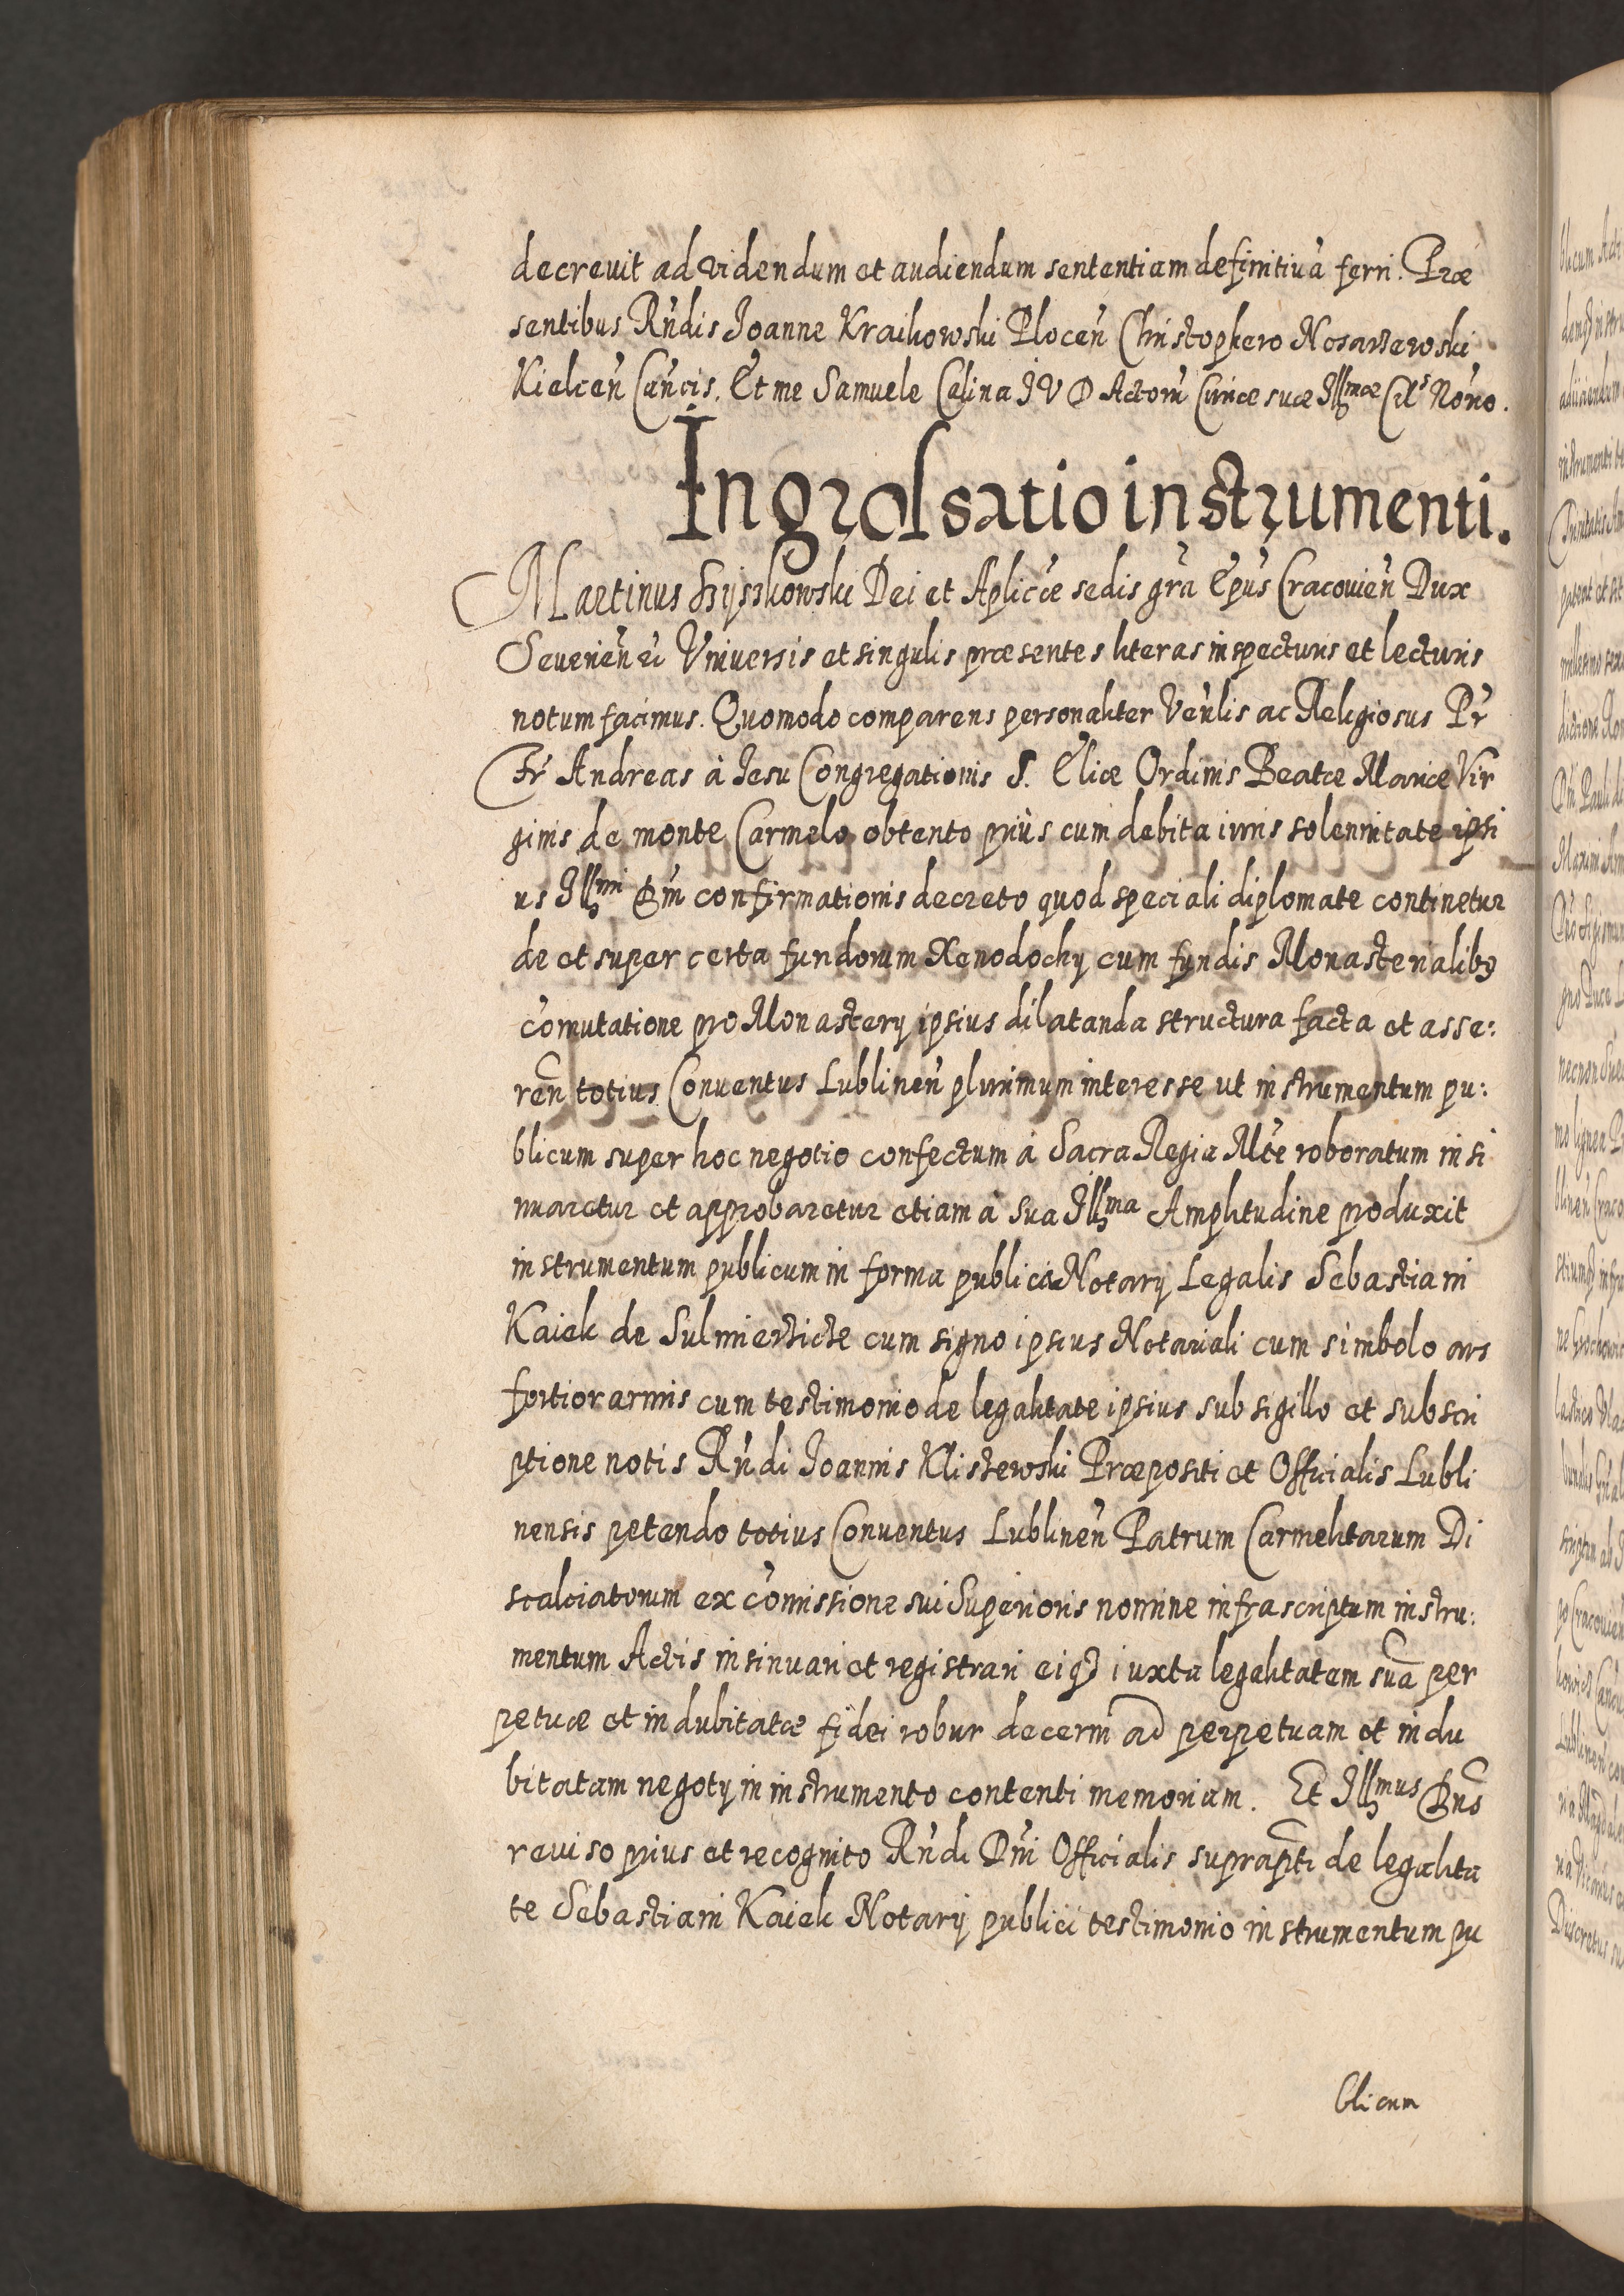 decrevit ad videndum et audiendum sententiam definitiuā ferri. Præ
sentibus Rndis Joanne Kraikowski Plocen̄ Christophero Nosarzewski
Kielcen̄ Can̄cis. Et me Samuele Celina JVD Actorū Curiæ suæ Jllmæ Cels Nōrio.
Ingrossatio instrumenti.
Martinus Szyszkowski Dei et Aplicæ sedis grā Epūs Cracouien̄ Dux
Seuerien̄ ec̄ Vniuersis et singulis præsentes literas inspecturis et lecturis
notum facimus. Quomodo comparens personaliter Venlis ac Religiosus Pr̄
Fr̄ Andreas à Jesu Congregationis S. Eliæ Ordinis Beatæ Mariæ Vir
ginis de monte Carmelo obtento priùs cum debita iuris solennitate ipsi
us Jllmi Dn̄i confirmationis decreto quod speciali diplomate continetur
de et super certa fundorum Xenodochij cum fundis Monasterialibus
cōmutatione pro Monasterij ipsius dilatanda structura facta et asse:
ren̄ totius Conuentus Lublinen̄ plurimum interesse ut instrumentum pu:
blicum super hoc negotio confectum à Sacra Regia Mte roboratum insi
nuaretur et approbaretur etiam à sua Jllma Amplitudine produxit
instrumentum publicum in forma publica Notarij Legalis Sebastiani
Kaiek de Sulmierzicze cum signo ipsius Notariali cum simbolo ars
fortior armis cum testimonio de legalitate ipsius sub sigillo et subscri
ptione notis Rn̄di Joannis Kliszewski Præpositi et Officialis Lubli
nensis petendo totius Conuentus Lublinen̄ Patrum Carmelitarum Di
scalciatorum ex cōmissione sui Superioris nomine infrascriptum instru:
mentum Actis insinuari et registrari eiq3 iuxta legalitatem suā per
petuæ et indubitatæ fidei robur decerni ad perpetuam et indu
bitatam negotij in instrumento contenti memoriam. Et Jllmus Dn̄s
reuiso prius et recognito Rn̄di Dn̄i Officialis suprapti de legalita
te Sebastiani Kaiek Notarij publici testimonio instrumentum pu
blicum